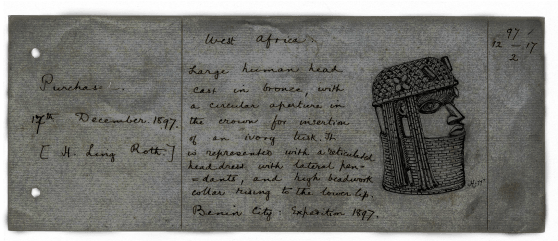 Purchas
17th December. 1897.
[H. Ling Roth.]
West Africa.
Large human head
cast in bronze, with
a circular aperture in
the crown for insertion
of an ivory tusk. It
is represented with a reticulated
head dress with lateral pen=
=dants, and high beadwork
collar rising to the lower lip.
Benin City: Expedition 1897.
97
12 — 17
2